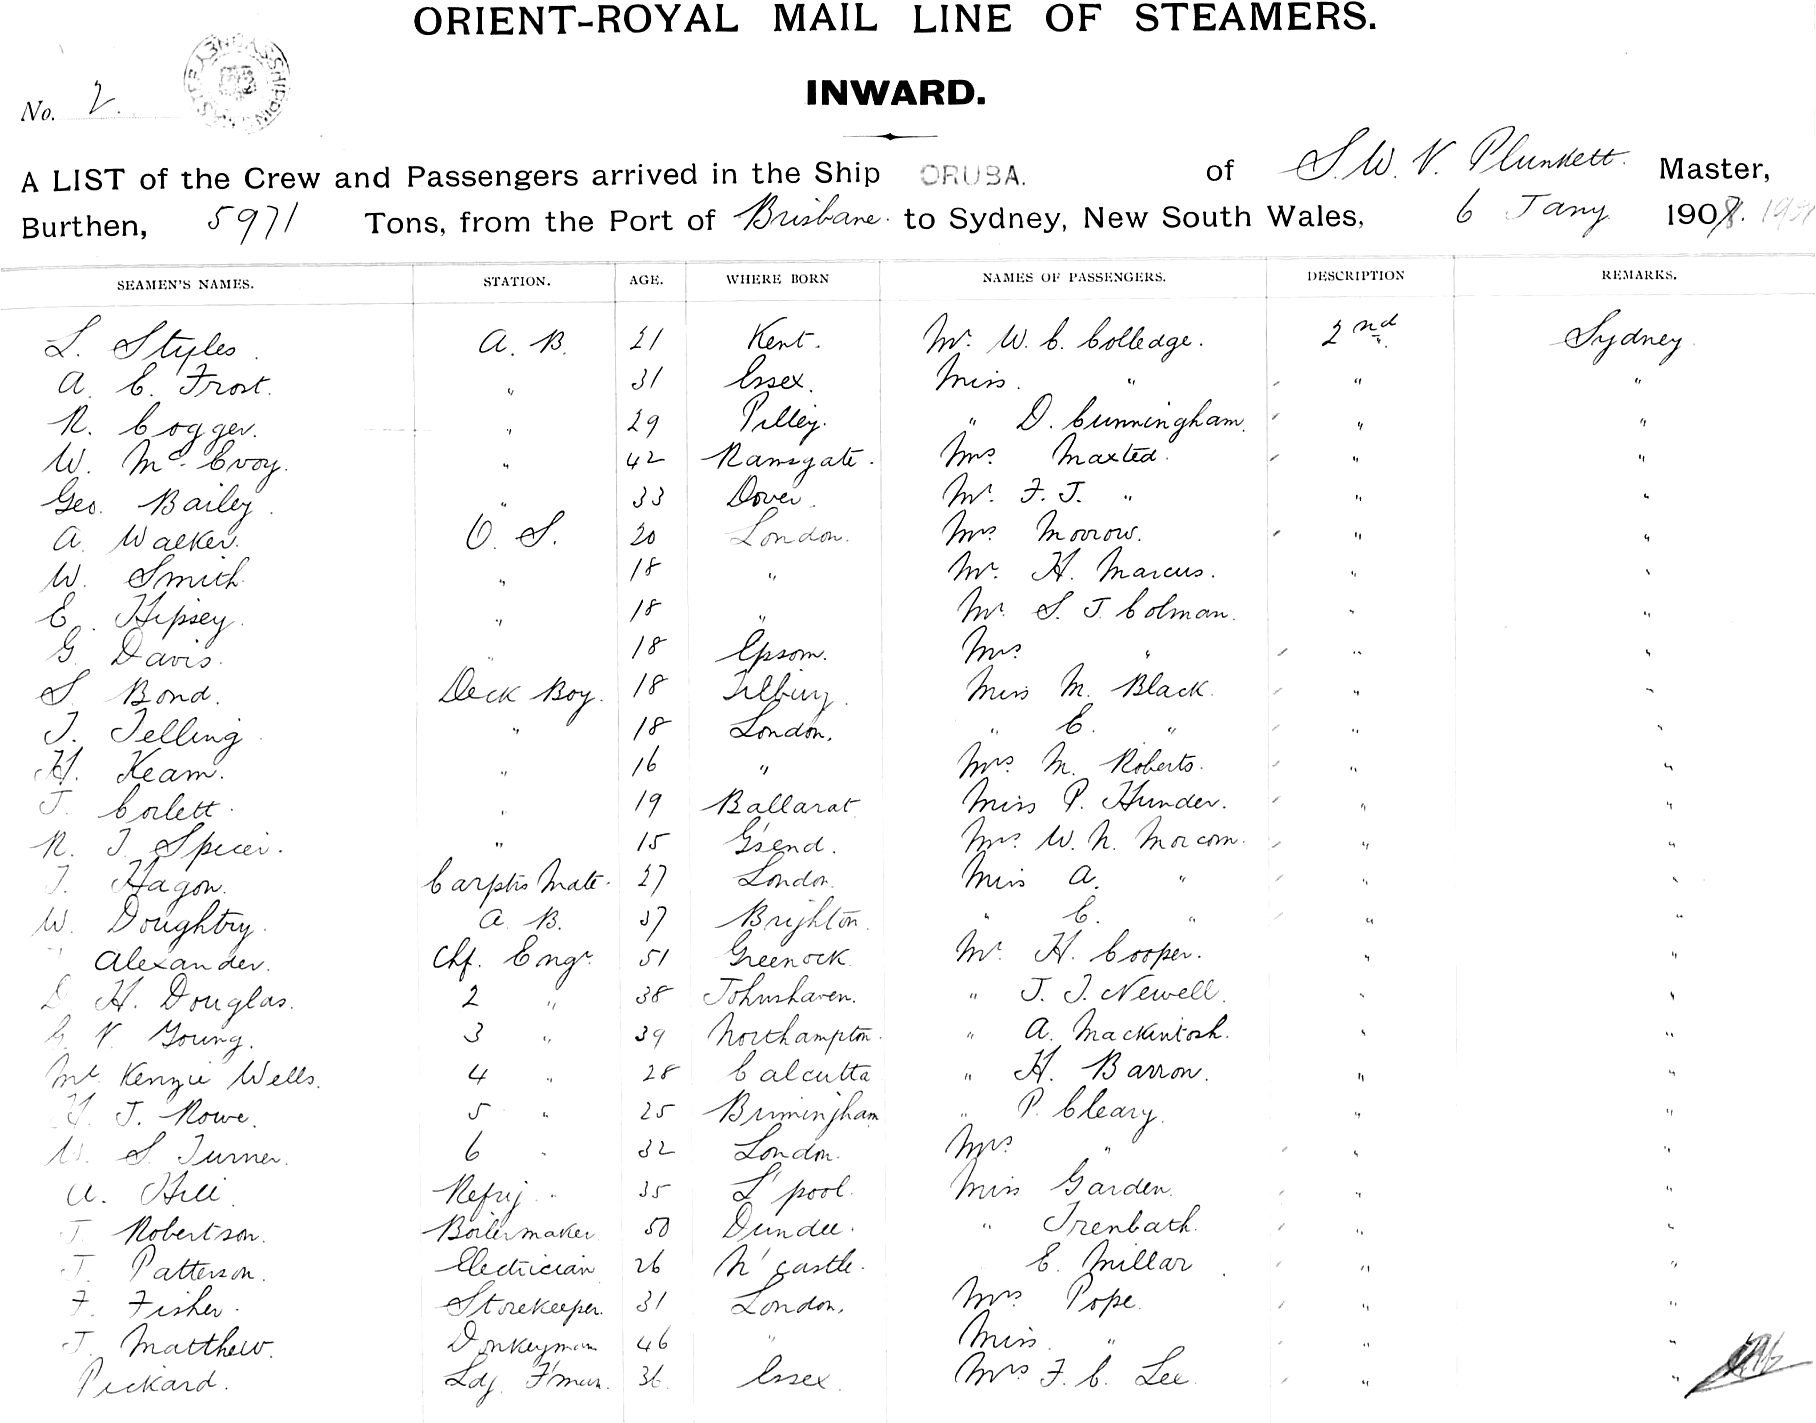 ORIENT-ROYAL MAIL LINE OF STEAMERS.
INWARD.
No. 2.
A LIST of the Crew and Passengers arrived in the Ship ORUBA. of S. W. V. Plunkett. Master,
Burthen, 5971 Tons, from the Port of Brisbane. to Sydney, New South Wales, 6 Jany 1908.
SEAMEN'S NAMES. STATION. AGE. WHERE BORN NAMES OF PASSENGERS. DESCRIPTION REMARKS.
L. Styles. A. B. 21 Kent. Mr. W. C. Colledge. 2nd. Sydney
A. C. Frost. " 31 Essex. Miss. " " "
R. Cogger. " 29 Pilley. " D. Cunningham. " "
W. Mc Evoy. " 42 Ramsgate. Mrs. Maxted. " "
Geo. Bailey. " 33 Dover. Mr. F. J. " " "
A. Walker. O. S. 20 London. Mrs Morrow. " "
W. Smith " 18 " Mr. H. Marcus. " "
E. Hipsey. " 18 " Mr. S. J. Colman. " "
G. Davis. " 18 Epsom. Mrs " " "
S. Bond. Deck Boy. 18 Tilbury. Miss M. Black. " "
T. Telling " 18 London. " E. " " "
H. Keam. " 16 " Mrs. M. Roberts. " "
J. Corlett. " 19 Ballarat Miss P. Hunder. " "
R. J. Spicer. " 15 G'send. Mrs. W. N. Morcom. " "
J. Hagon. Carptrs Mate. 27 London. Miss A. " " "
W. Doughtry. A. B. 37 Brighton. " E. " " "
" Alexander. Chf. Engr. 51 Greenock. Mr. H. Cooper. " "
D H. Douglas. 2 " 38 Johnshaven. " J. J. Newell. " "
G. V. Young. 3 " 39 Northampton. " A. Mackintosh. " "
Mc Kenzie Wells. 4 " 28 Calcutta " H. Barron. " "
H. J. Rowe. 5 " 25 Birmingham " P. Cleary. " "
W. S. Turner. 6 " 32 London. Mrs " " "
A. Hill. Refrig. " 35 L'pool. Miss Garden. " "
J. Robertson. Boilermaker 50 Dundee. " Trenbath. " "
J. Patterson. Electrician 26 N'castle. E. Millar " "
F. Fisher. Storekeeper. 31 London. Mrs. Pope. " "
J. Matthew. Donkeyman 46 " Miss. " " "
Pickard. Ldg. F'man. 36 Essex. Mrs F. C. Lee. " "